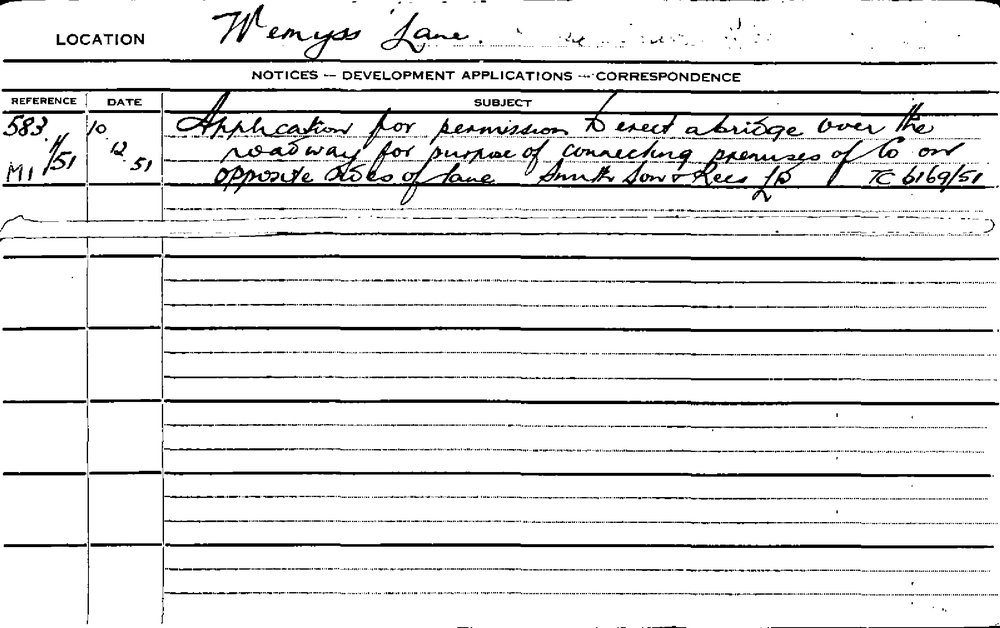 LOCATION Wemyss Lane.
NOTICES — DEVELOPMENT APPLICATIONS — CORRESPONDENCE
REFERENCE DATE SUBJECT
583 10 Application for permission to erect a bridge over the
1/51 12 roadway for purpose of connecting premises of Co on
M1 51 opposite sides of lane Smith Son & Rees Ld TC 6169/51